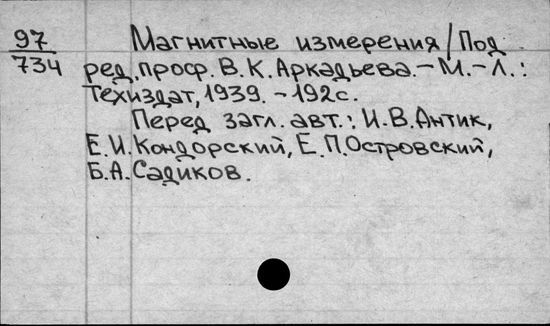 97 Магнитные измерения/Под
734 ред. проф. В.К.Аркадьева.-М.-Л.:
Техиздат, 1939. -192с.
Перед загл. авт.: И.В.Антик,
Е.И.Кондорский, Е.П.Островский,
Б.А.Садиков.